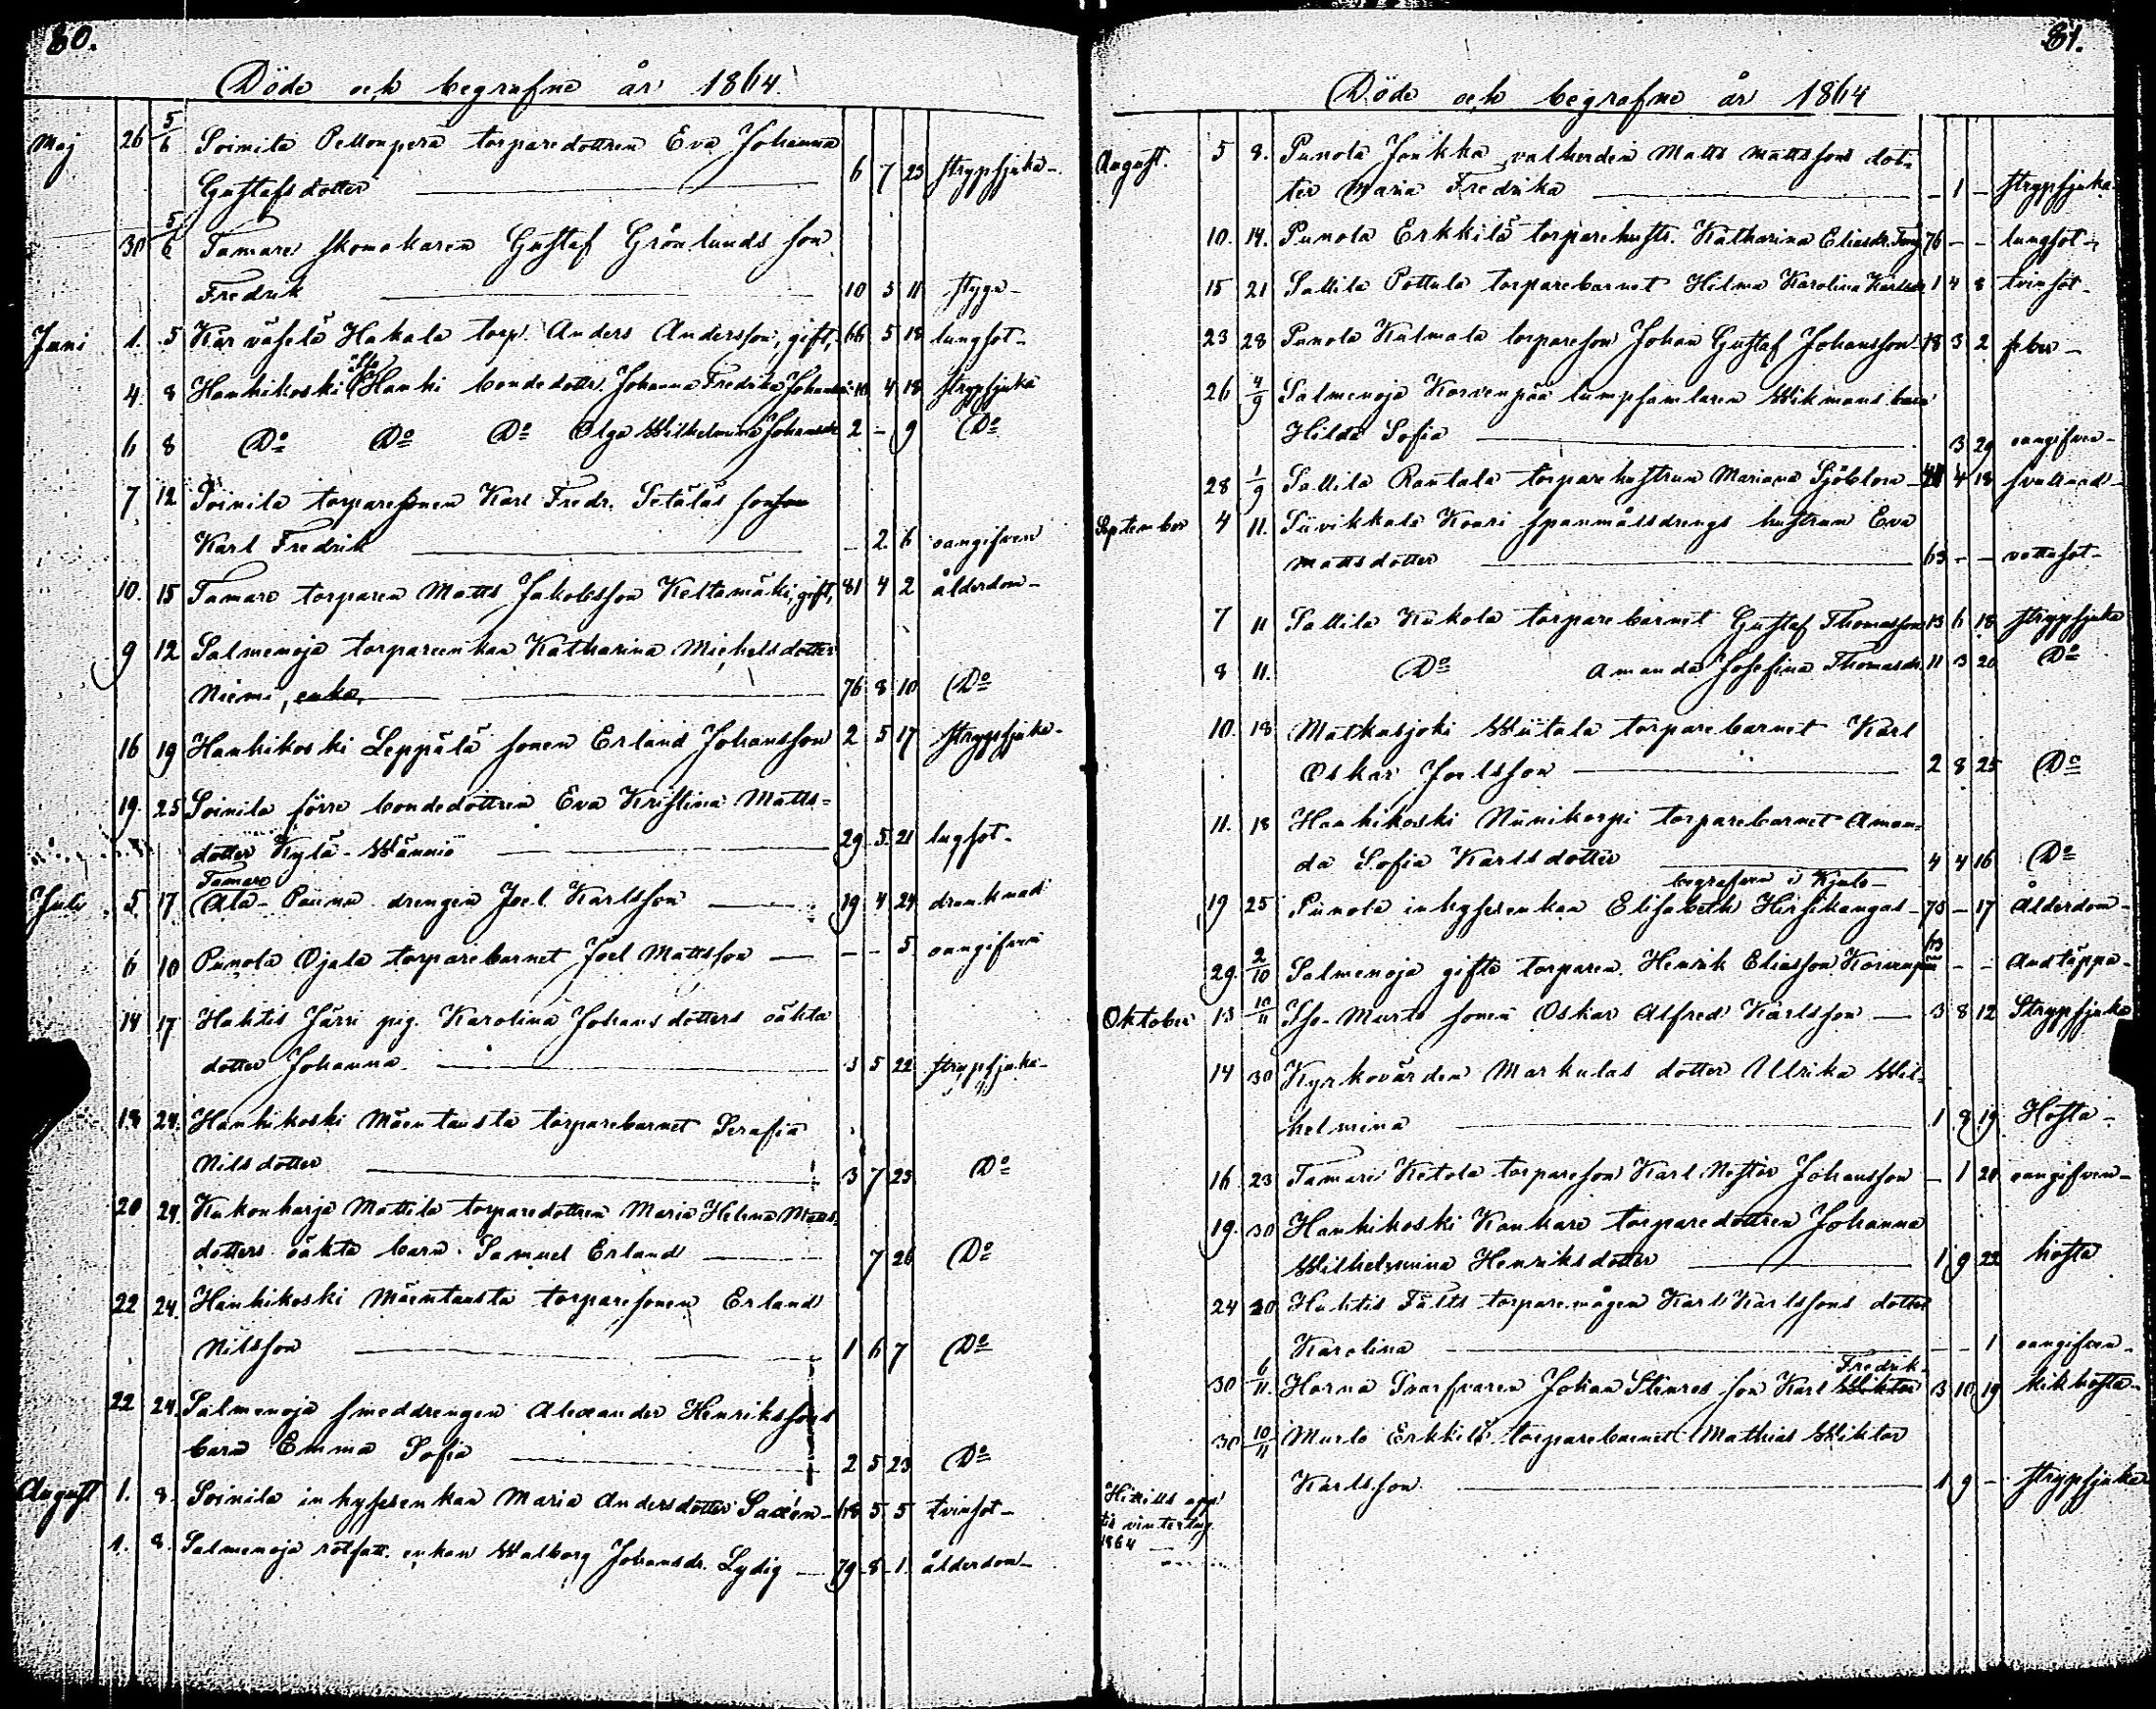 80.
Döde och begrafne år 1864.
Maj 26 5/6 Soinila Pellonperä torparedottren Eva Johanna
Gustafsdotter 6 7 23 strypsjuka
30 5/6 Tamare skomakaren Gustaf Grönlunds son
Fredrik 10 5 11 styga
Juni 1. 5 Karvaselä Hakala torp. Anders Andersson, gift, 66 5 18 lungsot
4. 8 Hanhikoski Iso Hanhi bondedottr. Johanna Fredrika 4 18 strypsjuka
6 8 Do Do Do Olga Wilhelmina Johansdr 2 - 9 Do
7 12 Soinila torparesonen Karl Fredr. Setäläs sonson
Karl Fredrik - 2 6 oangifven
10. 15 Tamare torparen Matts Jakobsson Keltamäki, gift, 81 4 2 ålderdom
9 12 Salmenoja torpareenkan Katharina Michelsdotter
Niemi, enka, 76 8 10 Do
16 19 Hanhikoski Leppälä sonen Erland Johansson 2 5 17 strypsjuka
19. 25 Soinila förre bondedottren Eva Kristina Matts-
dotter Kylä-Wännio 29 5 21 lugsot
Tamare
Juli 5 17 Ala-Pauna drengen Joel Karlsson 19 4 24 drunknad
6 10 Punola Ojala torparebarnet Joel Mattsson - - 5 oangifven
14 17 Huhtis Järri pig. Karolina Johansdotters oäkta
dotter Johanna 3 5 22 strypsjuka
18 24. Hanhikoski Mäentausta torparebarnet Serafia
Nilsdotter 3 7 23 Do
20 24. Kukonharja Mattila torparedottren Maria Helena Matts-
dotters oäkta barn Samuel Erland 7 26 Do
22 24. Hanhikoski Mäentausta torparesonen Erland
Nilsson 1 6 7 Do
22 24. Salmenoja smeddrengen Alexander Henrikssons
barn Emma Sofia 2 5 23 Do
August 1. 8. Soinila inhysesenkan Maria Andersdotter Saxén 68 5 5 tvinsot
1. 8. Salmenoja rotfatt. enkan Walborg Johansdr. Lydig 79 8 1 ålderdom
81.
Döde och begrafne år 1864
August. 5 8. Punola Jonkka valherden Matts Mattsons dot-
ter Maria Fredrika - 1 - strypsjuka
10. 14. Punola Erkkilä torparehustr. Katharina Eliasdr. 76 - - lungsot
15 21 Sallila Pottala torparebarnet Hilma Karolina Karlsdr 1 4 8 tvinsot
23 28 Punola Kulmala torpareson Johan Gustaf Johansson 18 3 2 feber
26 4/9 Salmenoja Korvenpää lumpsamlaren Wikmans barn
Hilda Sofia 3 29 oangifven
28 1/9 Sallila Rautala torparehustrun Mariana Sjöblom 4 18 svullnad
September 4 11. Suvikkala Kouri spanmålsdrengs hustrun Eva
Mattsdotter 63 - - vattusot
7 11 Sallila Kukola torparebarnet Gustaf Thomasson 13 6 18 strypsjuka
8 11. Do Amanda Josefina Thomasdr. 11 3 20 Do
10. 18 Matkusjoki Wiitala torparebarnet Karl
Oskar Joelsson 2 8 25 Do
11. 18 Hanhikoski Niinikorpi torparebarnet Aman-
da Sofia Karlsdotter 4 4 16 Do
begrafven i Kjulo
19 25 Punola inhysesenkan Elisabeth Hirsikangas 75 - 17 Ålderdom
29. 2/10 Salmenoja gifte torparen Henrik Eliasson Korvenpää 63 - - Andtäppa
Oktober 13 10/11 Iso-Murto sonen Oskar Alfred Karlsson 3 8 12 Strypsjuka
14 30 Kyrkovärden Markulas dotter Ulrika Wil-
helmina 1 8 19 Hosta
16 23 Tamare Ketola torpareson Karl Nestor Johansson - 1 20 oangifven
19. 30 Hanhikoski Kankare torparedottren Johanna
Wilhelmina Henriksdotter 1 9 22 hosta
24 30 Huhtis Fält torparemågen Karl Karlssons dotter
Karolina - - 1 oangifven
Fredrik
30 6/11. Harna Svarfvaren Johan Stenros son Karl Wiktor 3 10 19 kikhosta
30 10/11 Murto Erkkilä torparebarnet Mathias Wiktor
Karlsson 1 9 - strypsjuka
Hitills upp
till vinterting
1864